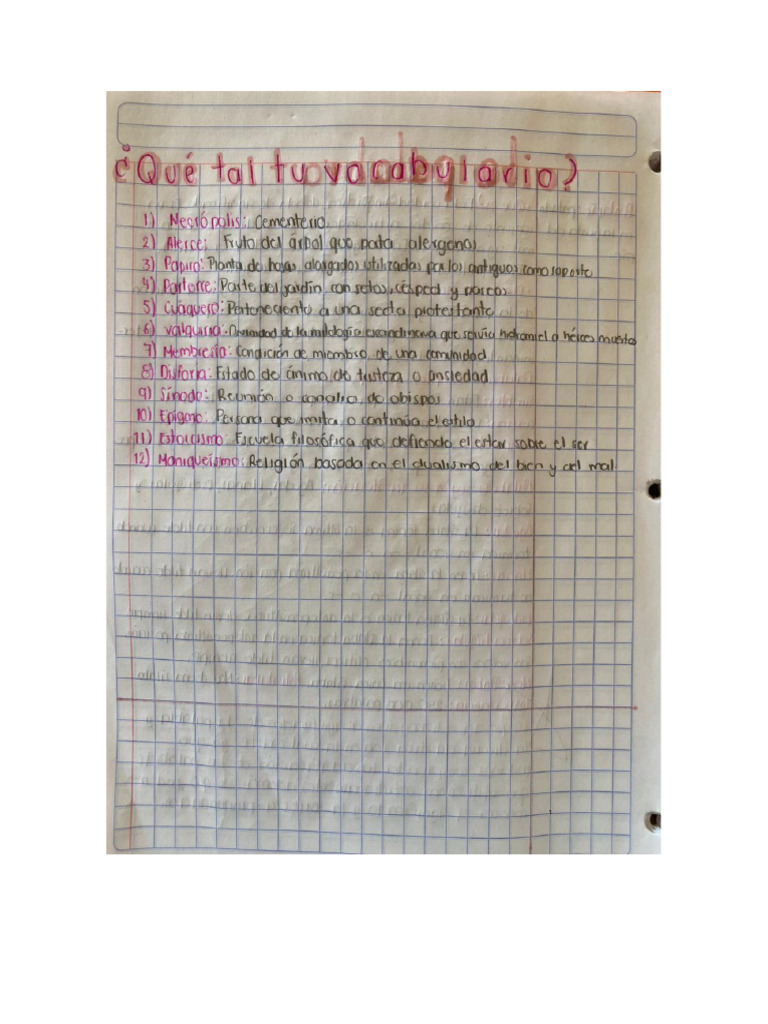 ¿Qué tal tu vocabulario?
1) Necrópolis: Cementerio
2) Alerce: Fruto del árbol que pata alergenos
3) Papiro: Planta de hojas alargados utilizados por los antiguos como soporte
4) Parterre: Parte del jardín con setos, césped y
5) Cuáquero: Perteneciente a una secta protestante
6) Valquiria: Divinidad de la mitología escandinava que servía hidromiel a héroes muertos
7) Membresía: Condición de miembro de una comunidad
8) Disforia: Estado de ánimo de tristeza o ansiedad
9) Sínodo: Reunión o concilio de obispos
10) Epígono: Persona que imita o continúa el estilo
11) Estoicismo: Escuela filosófica que defiende el estar sobre el ser
12) Maniqueísmo: Religión basada en el dualismo del bien y del mal.